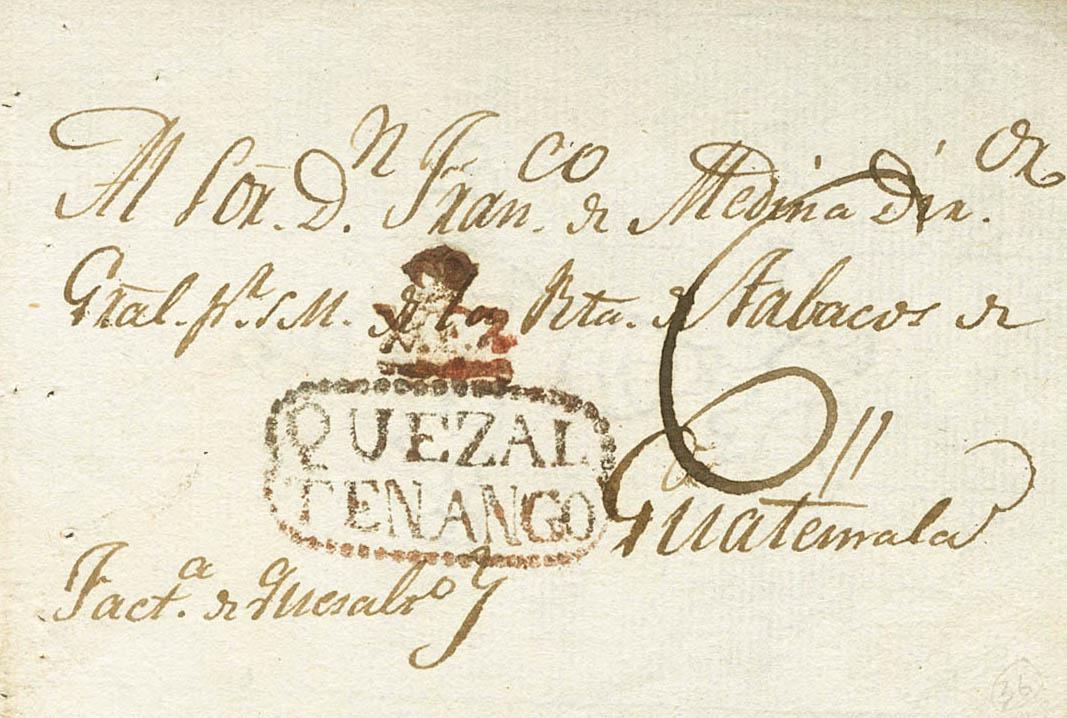 Al Sōr. D.ⁿ Franᶜᵒ. de Medina Dir.ᵒʳ
Gr̄al. p.ʳ S M. de la Rta. de Tabacos de
6
QUEZAL
TENANGO
Guatemala
Fact.ª de Quesalᵒ
36